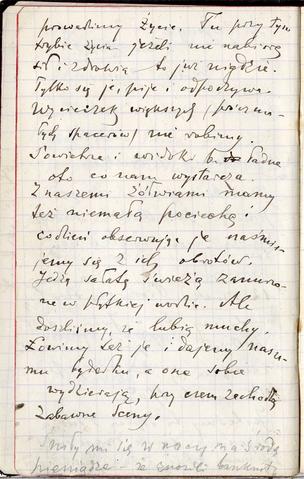 prowadzimy życie. Tu przy tym
trybie życia jeżeli nie nabiorę
sił i zdrowia to już nigdzie.
Tylko się je, pije i odpoczywa.
Wycieczek większych (prócz ma-
łych spacerów) nie robimy.
Powietrze i widoki b. ładne
oto co nam wystarcza.
Z naszemi żółwiami mamy
też niemałą pociechę i
codzień obserwując je naśmie-
jemy się z ich obrotów.
Jedzą sałatę świeżą zanurzo-
ne w płytkiej wodzie. Ale
doszliśmy, że lubią muchy.
Łowimy też je i dajemy nasze-
mu bydełku, a one sobie
wydzierają, przy czem zachodzą
zabawne sceny.
Śniły mi się w nocy na środę
pieniądze – że banknoty